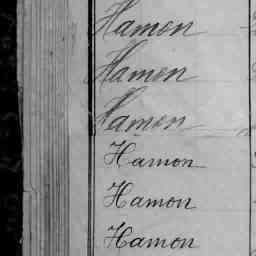 Hamon
Hamon
Hamon
Hamon
Hamon
Hamon